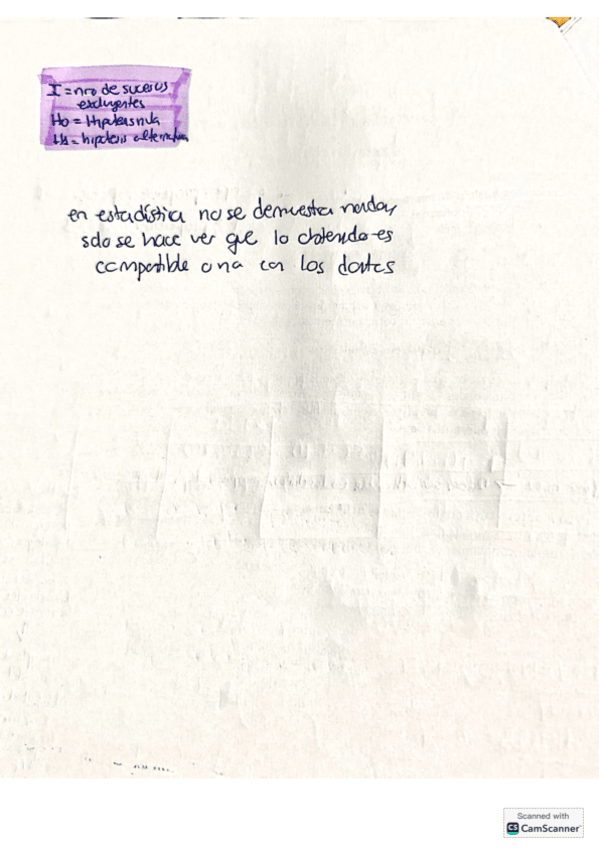 I = nro de sucesos
excluyentes
H0 = Hipótesis nula
H1 = hipótesis alternativa
en estadística no se demuestra nada,
solo se hace ver que lo obtenido es
compatible o no con los datos
Scanned with
CS CamScanner